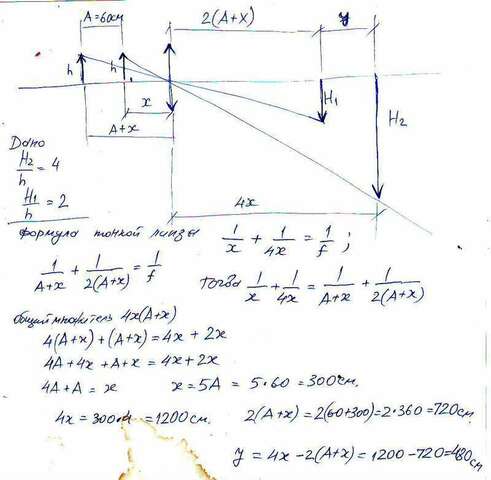 A=60см
2(A+x)
y
h
h
x
H₁
A+x
H₂
4x
Дано
H₂/h = 4
H₁/h = 2
Формула тонкой линзы 1/x + 1/4x = 1/f ;
1/(A+x) + 1/2(A+x) = 1/f
тогда 1/x + 1/4x = 1/(A+x) + 1/2(A+x)
общий множитель 4x(A+x)
4(A+x)+(A+x)=4x+2x
4A+4x+A+x=4x+2x
4A+A=x
x=5A = 5·60=300см.
4x=300·4=1200см.
2(A+x)=2(60+300)=2·360=720см.
y = 4x-2(A+x)=1200-720=480см